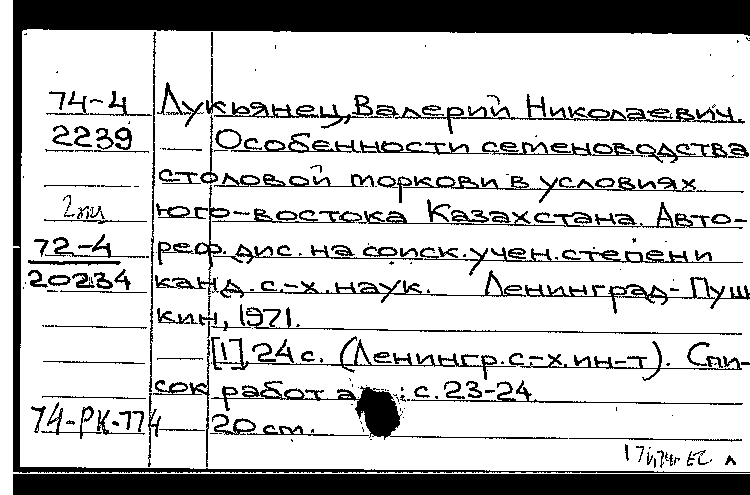 74-4 Лукьянец, Валерий Николаевич.
2239 Особенности семеноводства
столовой моркови в условиях
2 юго-востока Казахстана. Авто-
72-4 реф. дис. на соиск. учен. степени
20234 канд. с.-х. наук. Ленинград-Пуш
кин, 1971.
[1], 24 с. (Ленингр. с.-х. ин-т). Спи-
сок работ а : с. 23-24.
74-РК-774 20 см.